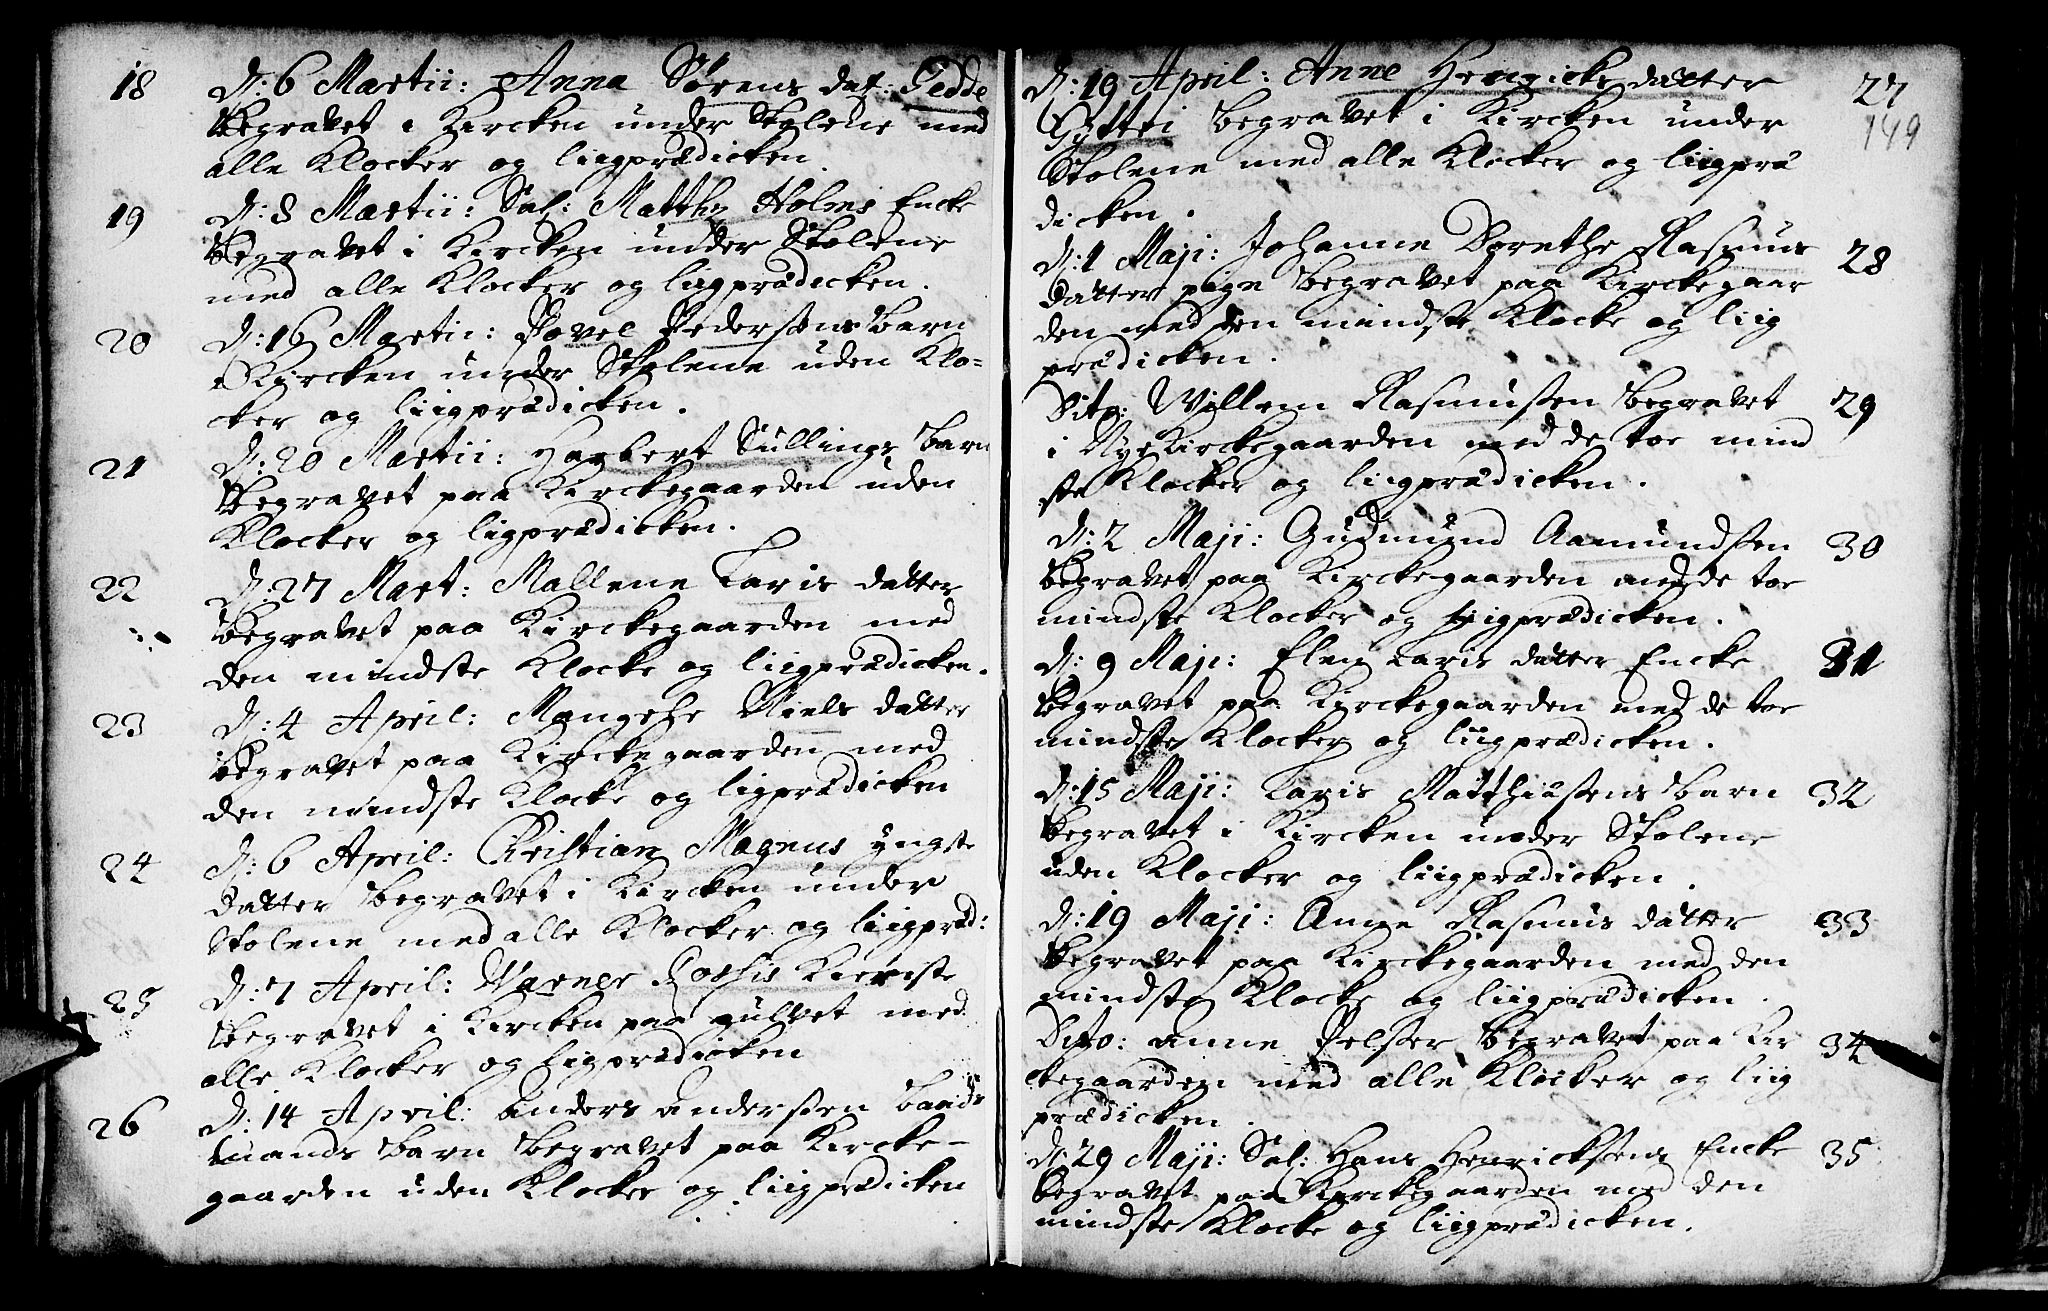 18 D: 6 Martii: Anna Sørens dat: Gedde
Begravet i Kircken under Stolene med
alle Klocker og liigprædicken
19 D: 8 Martii: Sal: Matthy Holms Encke
Begravet i Kircken under Stolene
med alle Klocker og ligprædicken.
20 D: 16 Martii: Povel Pedersens Barn
i Kircken under Stolene uden Klo-
cker og liigprædicken.
21 D: 20 Martii: Harbert Sullings Barn
Begravet paa Kirckegaarden uden
Klocker og ligprædicken.
22 D: 27 Mart: Mallene Laris datter
Begravet paa Kirckegaarden med
den mindste Klocke og liigprædicken.
23 D: 4 April: Niels datter
Begravet paa Kirckegaarden med
den mindste Klocke og ligprædicken
24 D: 6 April: Christian Magnus yngste
datter Begravet i Kircken under
Stolene med alle Klocker og liigpræd:
25 D: 7 April: Warner Kiereste
Begravet i Kircken paa gulvet med
alle Klocker og Ligprædicken
26 D: 14 April: Anders Andersen Baads
mands Barn Begravet paa Kircke-
gaarden uden Klocker og liigprædicken
D: 19 April: Anne Henricks datter 27
Gyttri Begravet i Kircken under 149
Stolene med alle Klocker og liigpræ
dicken.
D: 1 Maji: Johanne Dorethe Rasmus 28
datter pige Begravet paa Kirckegaar
den med den mindste Klocke og liig
prædicken.
Dito: Willem Rasmusen Begravet 29
i Nye Kirckegaarden med de toe mind
ste Klocker og liigprædicken.
D: 2 Maji: Gudmund Aamundsen 30
Begravet paa Kirckegaarden med de toe
mindste Klocker og liigprædicken.
D: 9 Maji: Elen Laris datter Encke 31
Begravet paa Kirckegaarden med de toe
mindste Klocker og liigprædicken.
D: 15 Maji: Laris Matthiæsens Barn 32
Begravet i Kircken under Stolene
uden Klocker og liigprædicken.
D: 19 Maji: Anne Rasmus datter 33
Begravet paa Kirckegaarden med den
mindste Klocke og liigprædicken.
Dito: Anne Pelser Begravet paa Kir 34
ckegaarden med alle Klocker og liig
prædicken.
D: 29 Maji: Sal: Hans Henricksens Encke 35
Begravet paa Kirckegaarden med den
mindste Klocke og liigprædicken.